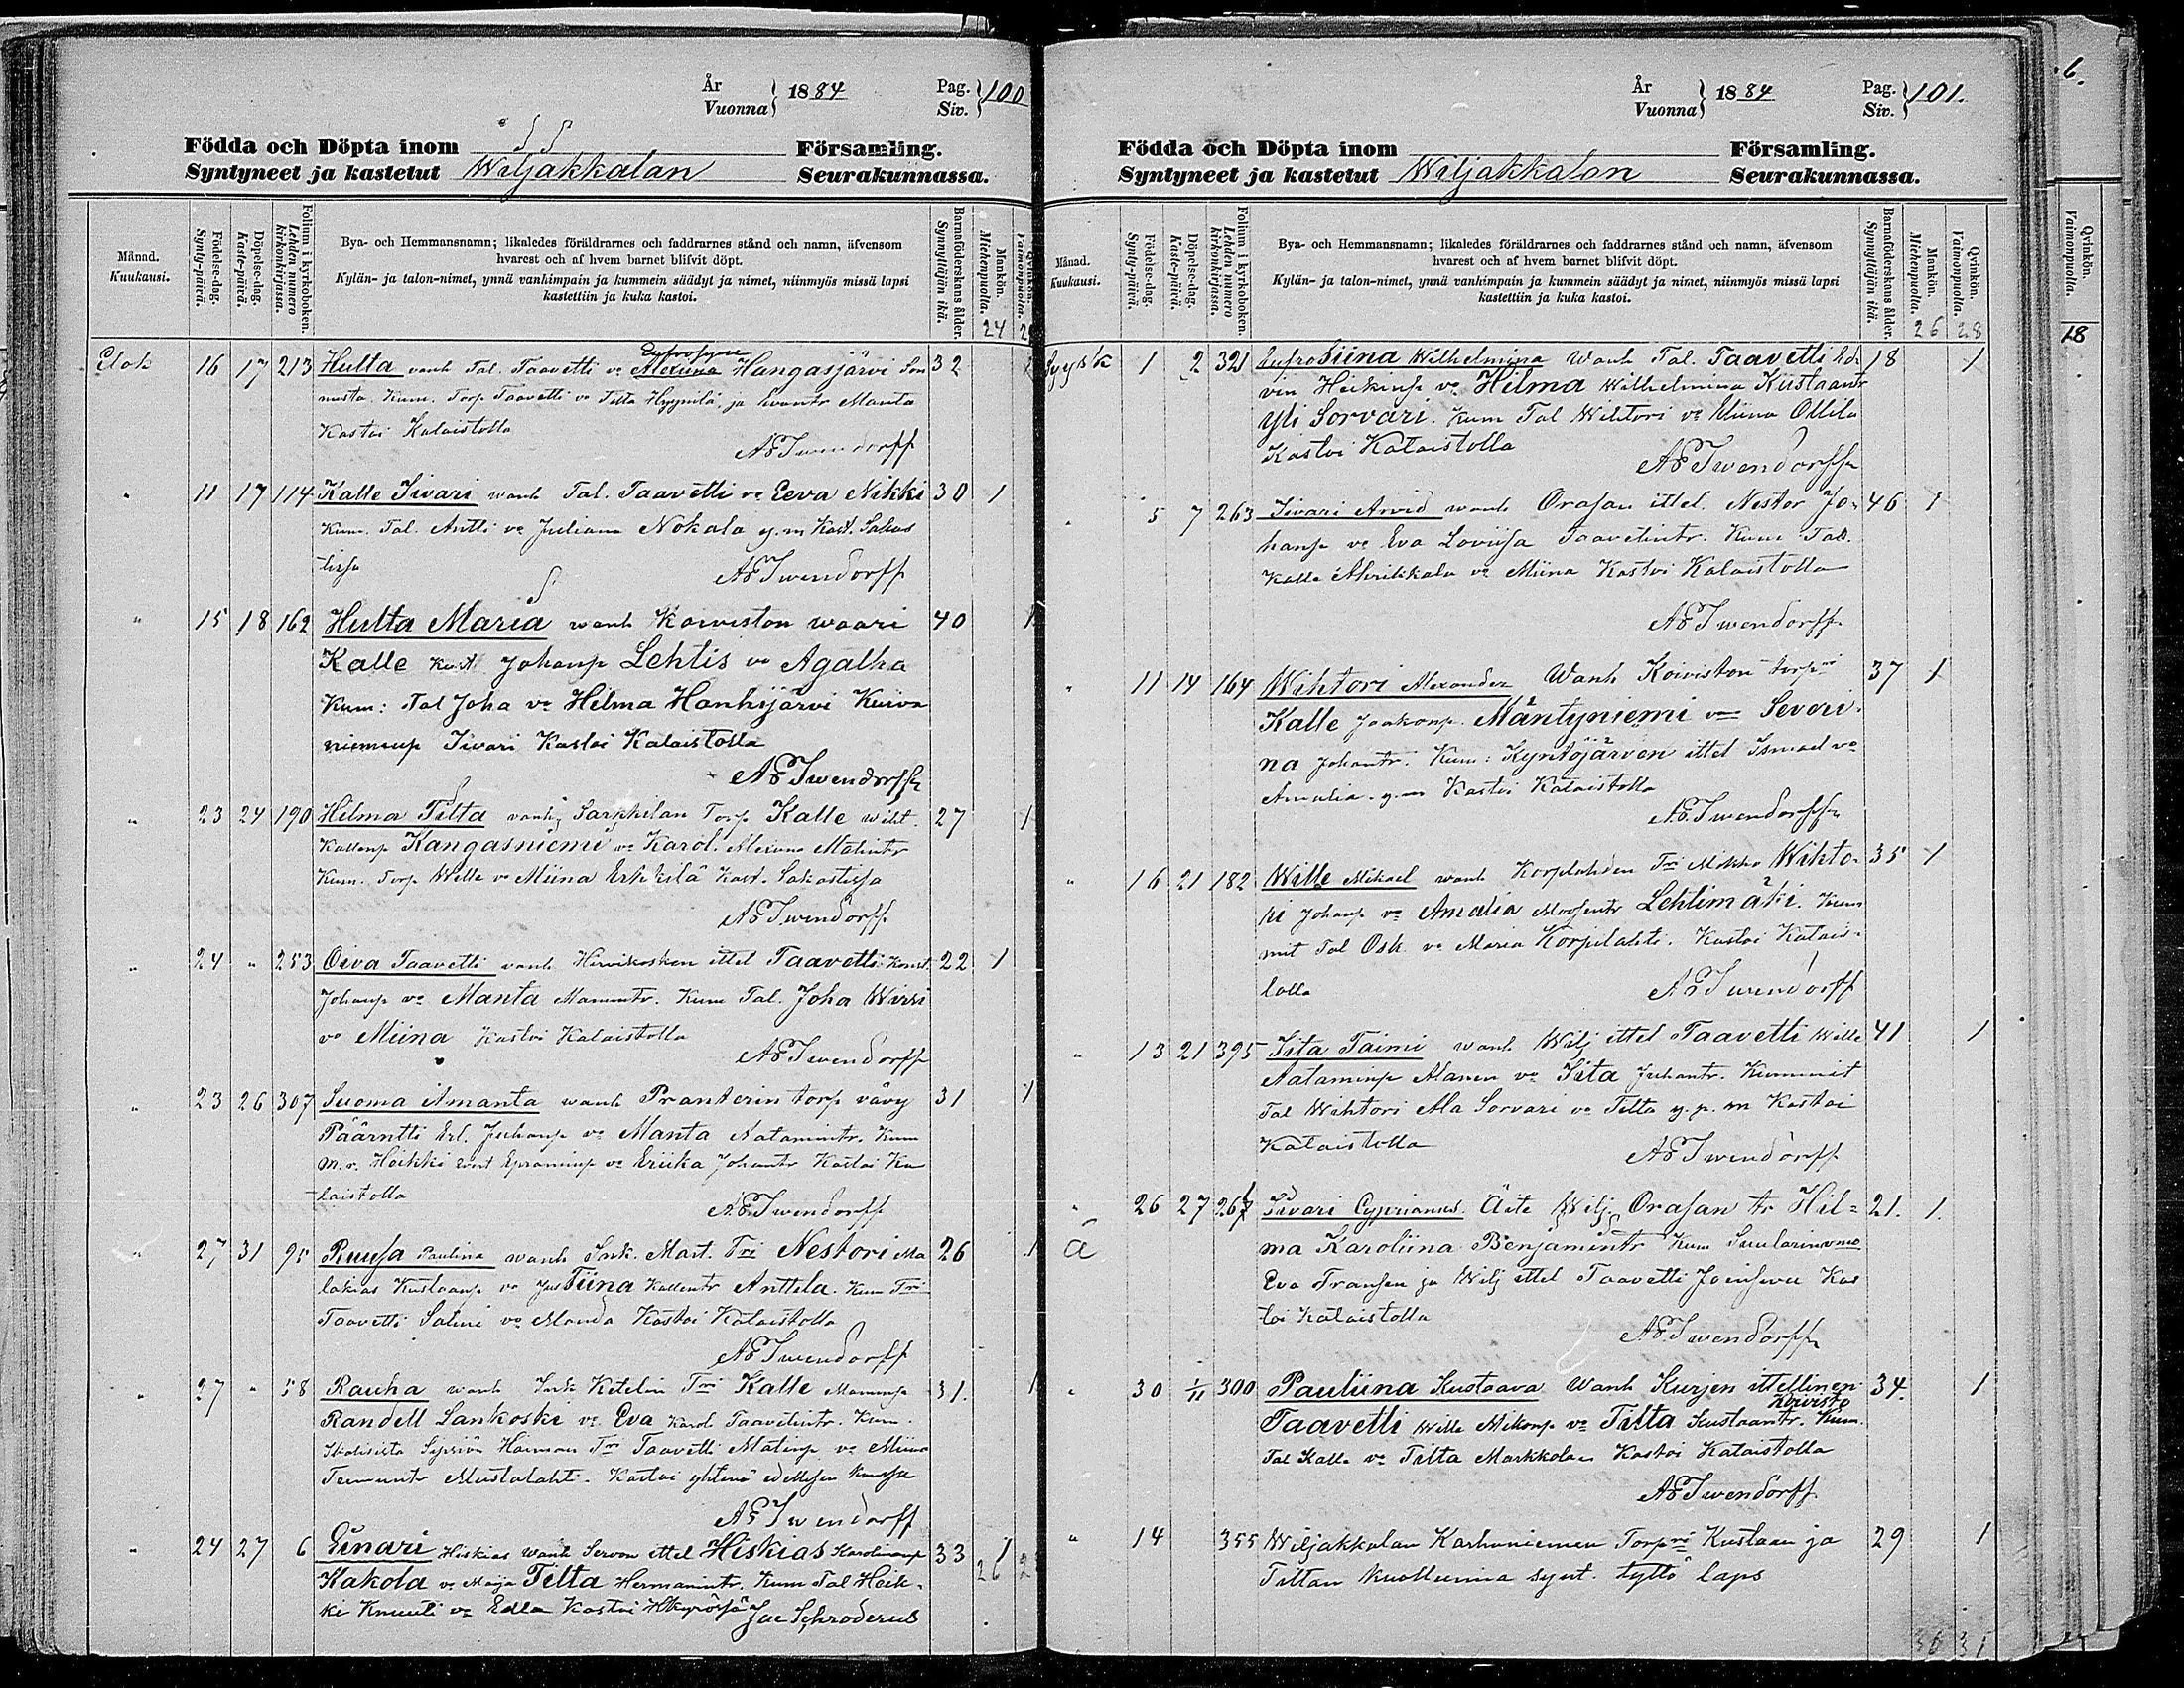 År
Vuonna } 1884
Pag.
Siv. } 100
Födda och Döpta inom Församling.
Syntyneet ja kastetut Wiljakkalan Seurakunnassa.
Månad.
Kuukausi.
Födelse-dag.
Synty-päivä.
Döpelse-dag.
Kaste-päivä.
Folium i kyrkoboken.
Lehden numero
kirkonkirjassa.
Bya- och Hemmansnamn; likaledes föräldrarnes och faddrarnes stånd och namn, äfvensom
hvarest och af hvem barnet blifvit döpt.
Kylän- ja talon-nimet, ynnä vanhimpain ja kummein säädyt ja nimet, niinmyös missä lapsi
kastettiin ja kuka kastoi.
Barnaföderskans ålder.
Synnyttäjän ikä.
Mankön.
Miehenpuolta.
Qvinkön.
Vaimonpuolta.
24
Elok 16 17 213 Hulta vanh Tal. Taavetti vo Alexiina Hangasjärvi 32
Kum. Torp Taavetti vo Tilta Hyynilä ja Manta
Kastoi Kalaistolla
AETwendorff
" 11 17 114 Kalle Iivari wanh Tal. Taavetti vo Eeva Nikki 30 1
Kum. Tal. Antti vo Juliana Nokala y. m Kast. Sakas
tissa
AETwendorff
" 15 18 162 Hulta Maria wanh Koiviston waari 40 1
Kalle Kust Johansp Lehtis vo Agatha
Kum: Tal Joha vo Helma Hanhijärvi Kuiva
niemensp Iivari Kastoi Kalaistolla
AETwendorff
" 23 24 190 Hilma Tilta vanh Sarkkilan Torp Kalle Wiht. 27 1
Kallensp Kangasniemi vo Karol. Matintr
Kum. Torp Wille vo Miina Erkkilä Kast. Sakastissa
AETwendorff
" 24 " 253 Oiva Taavetti vanh Hirvikosken ittel Taavetti Konst. 22 1
Johansp vo Manta Mammtr. Kum Tal. Joha Wirri
vo Miina Kastoi Kalaistolla
AETwendorff
" 23 26 307 Suoma Amanta wanh Pranterin torp vävy 31 1
Päärntti Erl. Juhansp vo Manta Aatamintr. Kum
m. r. Heikki Epraminsp vo Eriika Johantr Kastoi Ka
laistolla
AETwendorff
" 27 31 95 Ruusa Paulina wanh Ink. Mart. Tri Nestori Ma 26 1
lakias Kustaansp vo Jus Tiina Kallentr Anttila. Kum Tri
Taavetti Salmi vo Manda Kastoi Kalaistolla
AETwendorff
" 27 " 58 Rauha wanh Ink Ketelin Tri Kalle Mannusp 31. 1
Randell Lankoski vo Eva Karol. Taavetintr. Kum.
Tri Taavetti Matinsp vo Miina
Mustalahti. Kastoi yhtenä edellisen kanssa
AETwendorff
" 24 27 6 Einari Hiskias wanh Servon ittel Hiskias Karolinansp 33 1
Kakola vo Maija Tilta Hermanintr. Kum Tal Heik-
ki Knuuti vo Edla Kastoi Hkyrössä Jac Schroderus
26
År
Vuonna } 1884
Pag.
Siv. } 101.
Födda och Döpta inom Församling.
Syntyneet ja kastetut Wiljakkalan Seurakunnassa.
Månad.
Kuukausi.
Födelse-dag.
Synty-päivä.
Döpelse-dag.
Kaste-päivä.
Folium i kyrkoboken.
Lehden numero
kirkonkirjassa.
Bya- och Hemmansnamn; likaledes föräldrarnes och faddrarnes stånd och namn, äfvensom
hvarest och af hvem barnet blifvit döpt.
Kylän- ja talon-nimet, ynnä vanhimpain ja kummein säädyt ja nimet, niinmyös missä lapsi
kastettiin ja kuka kastoi.
Barnaföderskans ålder.
Synnyttäjän ikä.
Mankön.
Miehenpuolta.
Qvinkön.
Vaimonpuolta.
26 28
Syysk 1 2 321 Eufrosiina Wilhelmina Wanh Tal. Taavetti Ed- 18 1
vin Heikinsp vo Hilma Wilhelmina Kustaantr
Yli Sorvari. Kum Tal Wihtori vo Miina Ollila
Kastoi Kalaistolla
AETwendorff
" 5 7 263 Iivari Arvid wanh Orasan ittel. Nestor Jo- 46 1
hansp vo Eva Loviisa Taavetintr. Kum Tal.
Kalle Ahrikkala vo Miina Kastoi Kalaistolla
AETwendorff
" 11 14 164 Wihtori Alexander Wanh Koiviston torpri 37 1
Kalle Jaakonsp. Mäntyniemi vo Severi-
na Johantr. Kum: Kyröjärven ittel Ismael vo
Amalia y. m Kastoi Kalaistolla
AETwendorff
" 16 21 182 Wille Mikael wanh Korpilahden Tri Mikko Wihto- 35 1
ri Johansp vo Amalia Moosentr Lehtimäki. Kum
mit Tal Osk. vo Maria Korpilahti. Kastoi Kalais-
tolla
AETwendorff
" 13 21 395 Iita Taimi wanh Wilj ittel Taavetti Wille 41 1
Aataminsp Alanen vo Iita Juhantr. Kummit
Tal Wihtori Ala Sorvari vo Tilta y. p. m Kastoi
Kalaistolla
AETwendorff
" 26 27 267 Iivari Cyprianus. Äite Wilj. Orasan tr Hil= 21. 1.
ä ma Karoliina Benjamintr Kum Suutarinvmo
Eva Fransen ja Wilj ittel Taavetti Kas
toi Kalaistolla
AETwendorff
" 30 1/11 300 Pauliina Kustaava Wanh Kurjen ittellinen 34. 1
Koivisto
Taavetti Wille Mikonsp vo Tilta Kustaantr. Kum.
Tal Kalle vo Tilta Markkola Kastoi Kalaistolla
AETwendorff
" 14 355 Wiljakkalan Karhuniemen Torpri Kustaan ja 29 1
Tiltan kuolleena synt. tyttö laps
36 31
6.
Qvinkön.
Vaimonpuolta.
18